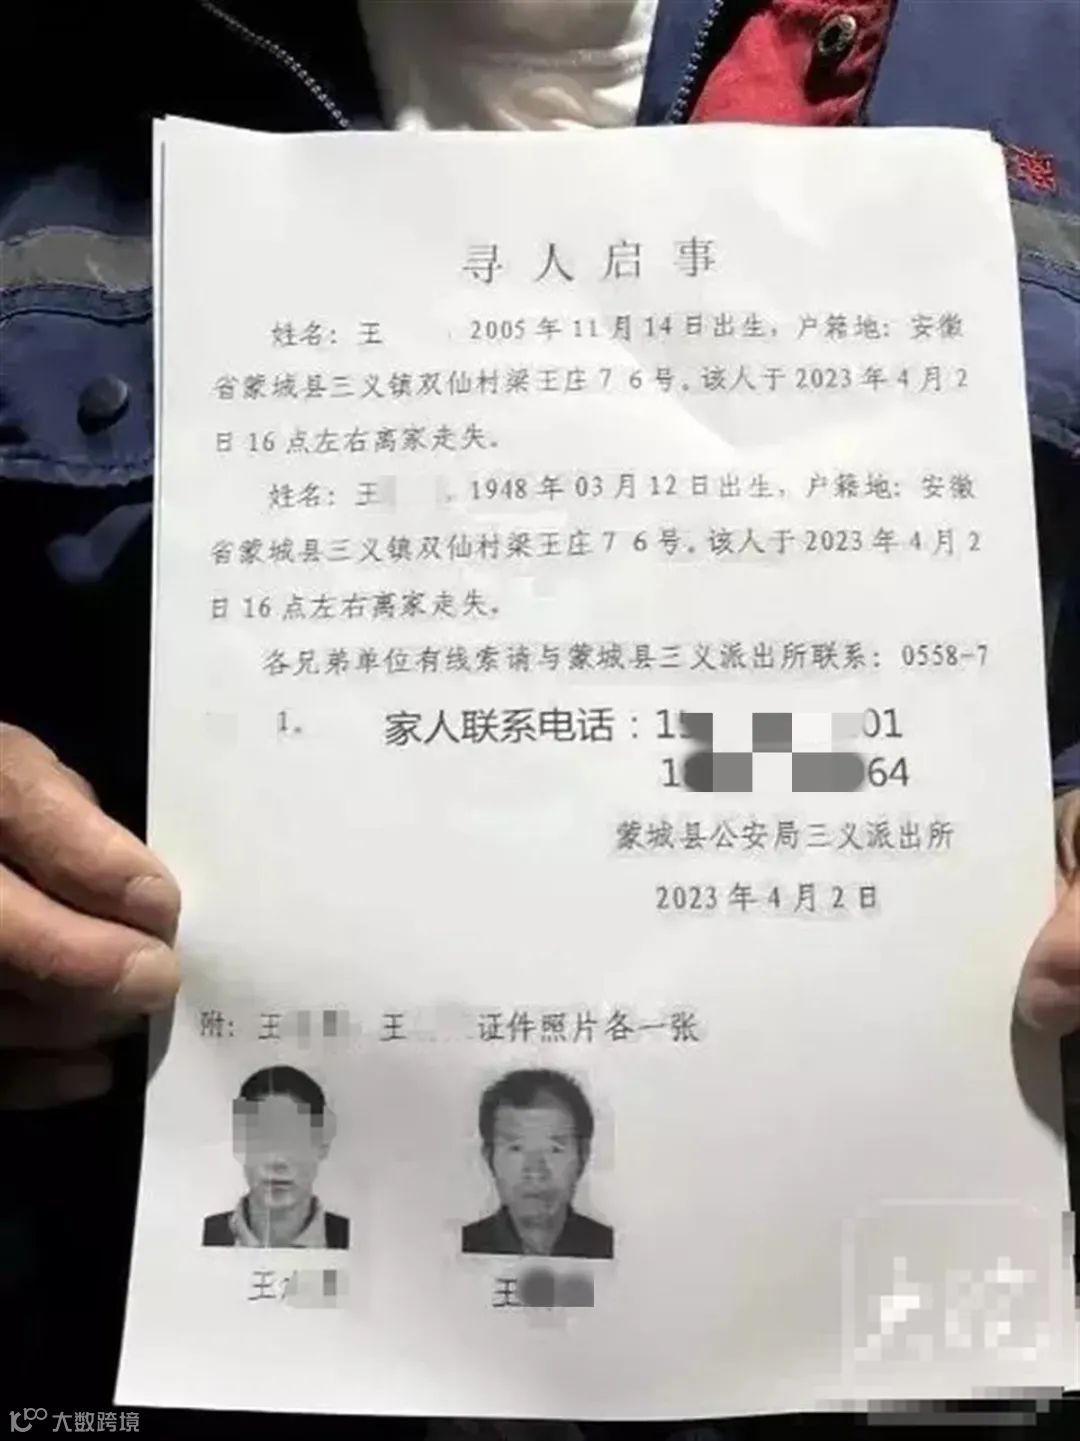 寻人启事
姓名：王 ，2005年11月14日出生，户籍地：安徽
省蒙城县三义镇双仙村梁王庄７６号。该人于2023年4月2
日16点左右离家走失。
姓名：王 ，1948年03月12日出生，户籍地：安徽
省蒙城县三义镇双仙村梁王庄７６号。该人于2023年4月2
日16点左右离家走失。
各兄弟单位有线索请与蒙城县三义派出所联系：0558-7
1。 家人联系电话：15 01
1 64
蒙城县公安局三义派出所
2023年4月2日
附：王 王 证件照片各一张
王 王
大数跨境